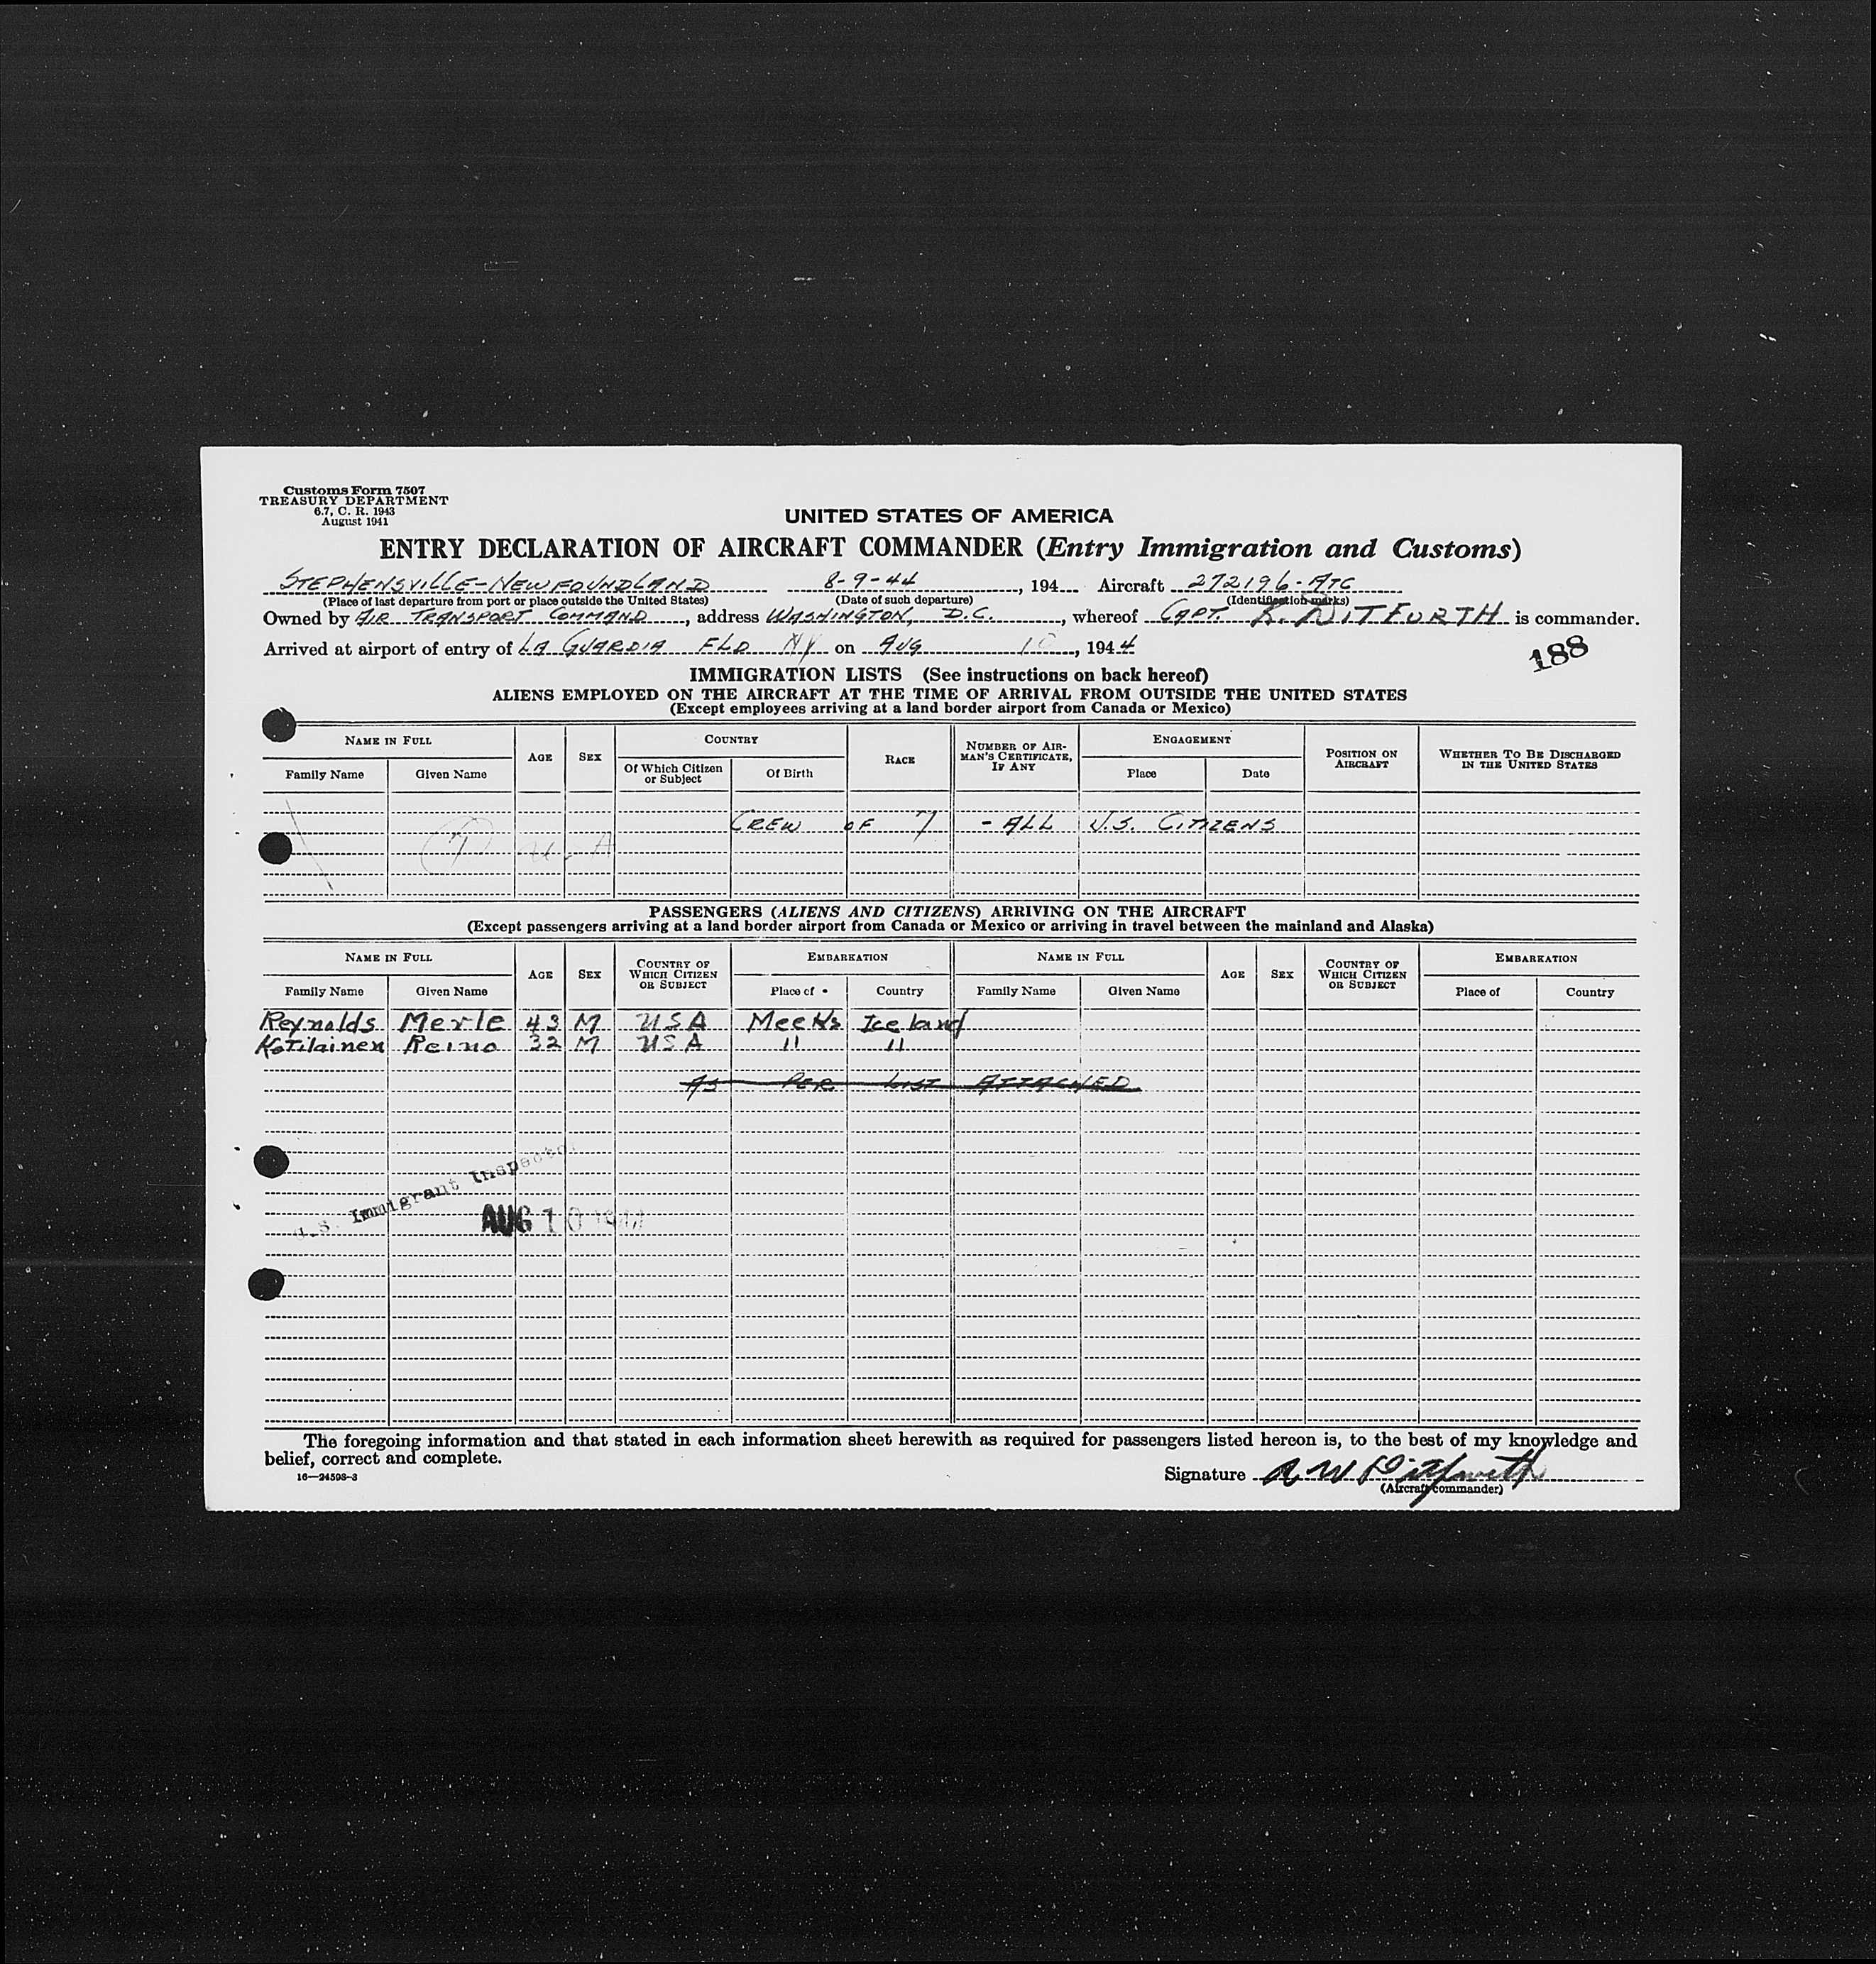 Customs Form 7507
TREASURY DEPARTMENT
6.7, C. R. 1943
August 1941
UNITED STATES OF AMERICA
ENTRY DECLARATION OF AIRCRAFT COMMANDER (Entry Immigration and Customs)
STEPHENSVILLE-NEWFOUNDLAND 8-9-44, 194 Aircraft 272196-ATC
(Place of last departure from port or place outside the United States) (Date of such departure) (Identification marks)
Owned by AIR TRANSPORT COMMAND, address WASHINGTON, D.C., whereof CAPT. is commander.
Arrived at airport of entry of LA GUARDIA FLD NY on AUG 10, 1944
188
IMMIGRATION LISTS (See instructions on back hereof)
ALIENS EMPLOYED ON THE AIRCRAFT AT THE TIME OF ARRIVAL FROM OUTSIDE THE UNITED STATES
(Except employees arriving at a land border airport from Canada or Mexico)
NAME IN FULL AGE SEX COUNTRY RACE NUMBER OF AIRMAN'S CERTIFICATE, IF ANY ENGAGEMENT POSITION ON AIRCRAFT WHETHER TO BE DISCHARGED IN THE UNITED STATES
Family Name Given Name Of Which Citizen or Subject Of Birth Place Date
CREW OF 7 - ALL U.S. CITIZENS
PASSENGERS (ALIENS AND CITIZENS) ARRIVING ON THE AIRCRAFT
(Except passengers arriving at a land border airport from Canada or Mexico or arriving in travel between the mainland and Alaska)
NAME IN FULL AGE SEX COUNTRY OF WHICH CITIZEN OR SUBJECT EMBARKATION NAME IN FULL AGE SEX COUNTRY OF WHICH CITIZEN OR SUBJECT EMBARKATION
Family Name Given Name Place of Country Family Name Given Name Place of Country
Reynolds Merle 43 M USA Meeks Iceland
Kotilainen Reino 32 M USA " "
AS PER LIST ATTACHED
U.S. Immigrant Inspector
AUG 10 1944
The foregoing information and that stated in each information sheet herewith as required for passengers listed hereon is, to the best of my knowledge and
belief, correct and complete.
16—24598-3
Signature
(Aircraft commander)